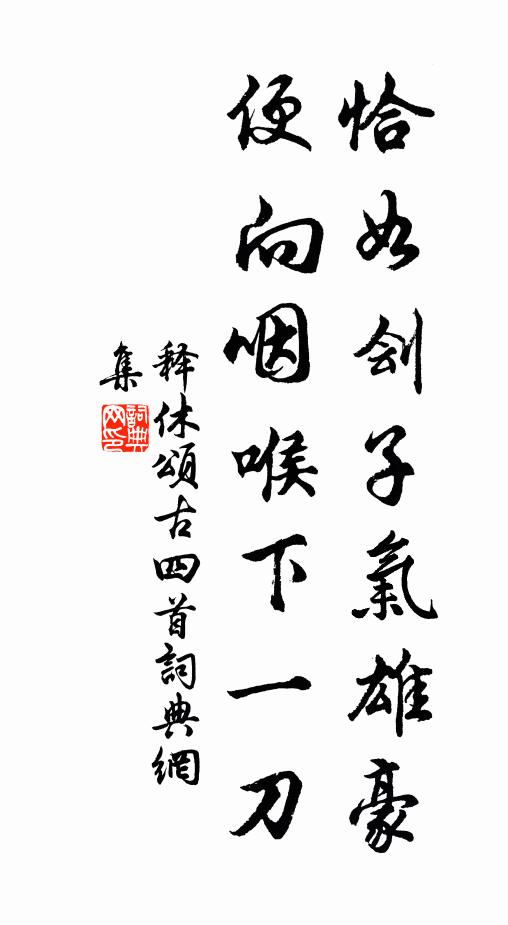 恰如劊子氣雄豪
便向咽喉下一刀
释休頌古四首詞典網
集
詞典
网印